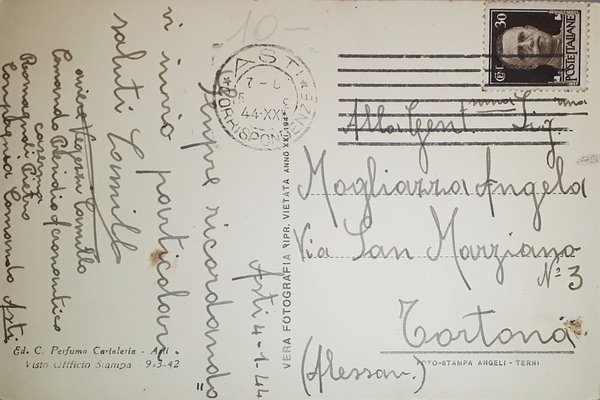 Asti 4-1-44
Sempre ricordando
vi invio particolari
saluti Camillo
Camillo
Comando Presidio
caserma
Compagnia Comando Asti
10-
ASTI
CORRISPONDENZE
7-8
5
44-XXII
Cent. 30
POSTE ITALIANE
Alla Gent.ma Sig.rina
Mogliazza Angela
Via San Marziano
Nº 3
Tortona
(Alessan.)
VERA FOTOGRAFIA RIPR. VIETATA ANNO XXI 194
FOTO-STAMPA ANGELI - TERNI
Ed. C. Perfumo Cartoleria - Asti
Visto Ufficio Stampa - 943-42